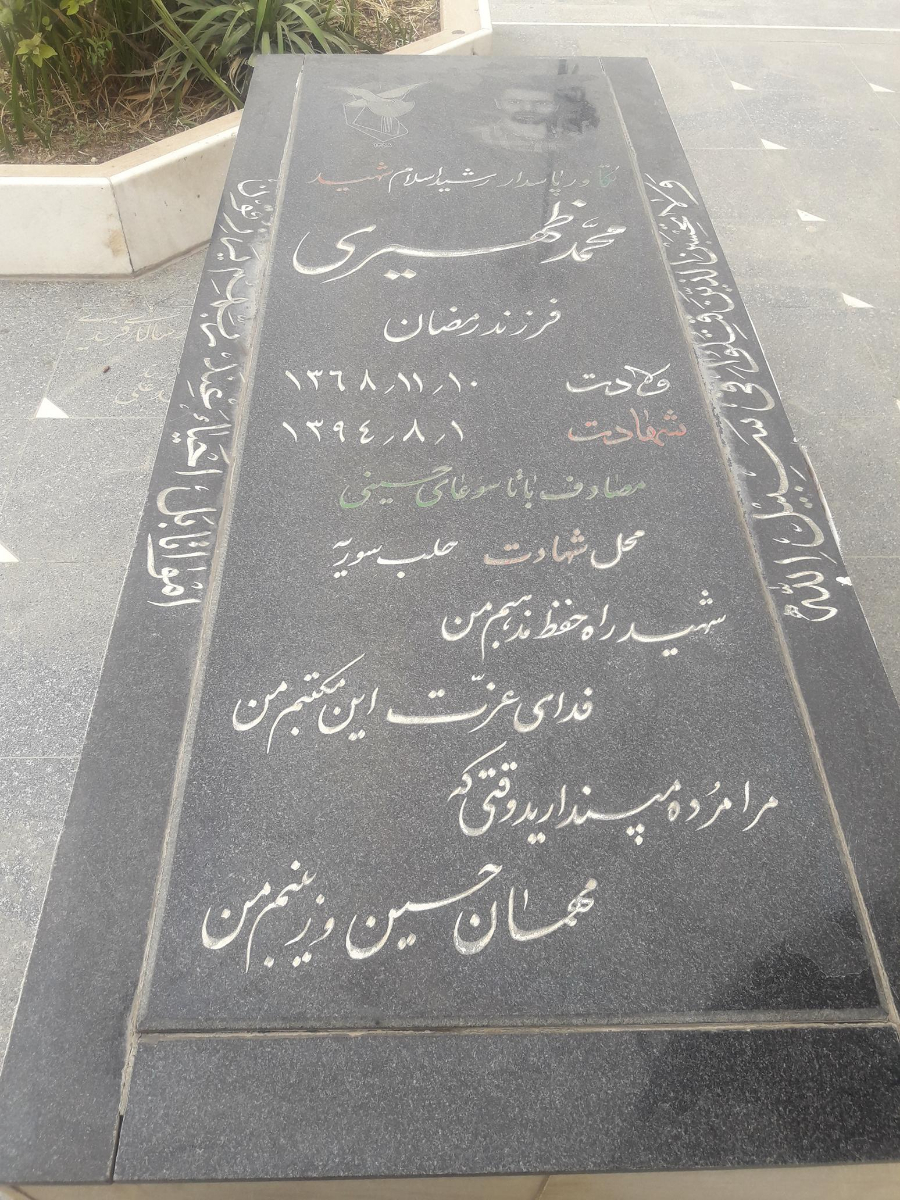 تکاور پاسدار رشید اسلام شهید
محمّد ظهیری
فرزند رمضان
ولادت ۱۳٦۸٫۱۱٫۱۰
شهادت ۱۳۹٤٫۸٫۱
مصادف با تاسوعای حسینی
محل شهادت حلب سوریه
شهید راه حفظ مذهبم من
فدای عزّت این مکتبم من
مرا مُرده مپندارید وقتی که
مهمان حسین و زینبم من
ولا تحسبن الذین قتلوا فی سبیل الله
امواتا بل احیاء عند ربهم یرزقون